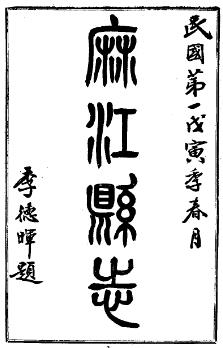 民國第一戊寅季春月
麻江縣志
李德暉題